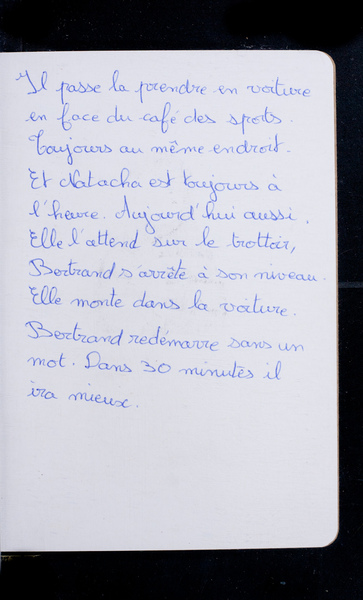 Il passe la prendre en voiture
en face du café des sports.
Toujours au même endroit.
Et Natacha est toujours à
l'heure. Aujourd'hui aussi.
Elle l'attend sur le trottoir,
Bertrand s'arrête à son niveau.
Elle monte dans la voiture.
Bertrand redémarre sans un
mot. Dans 30 minutes il
ira mieux.